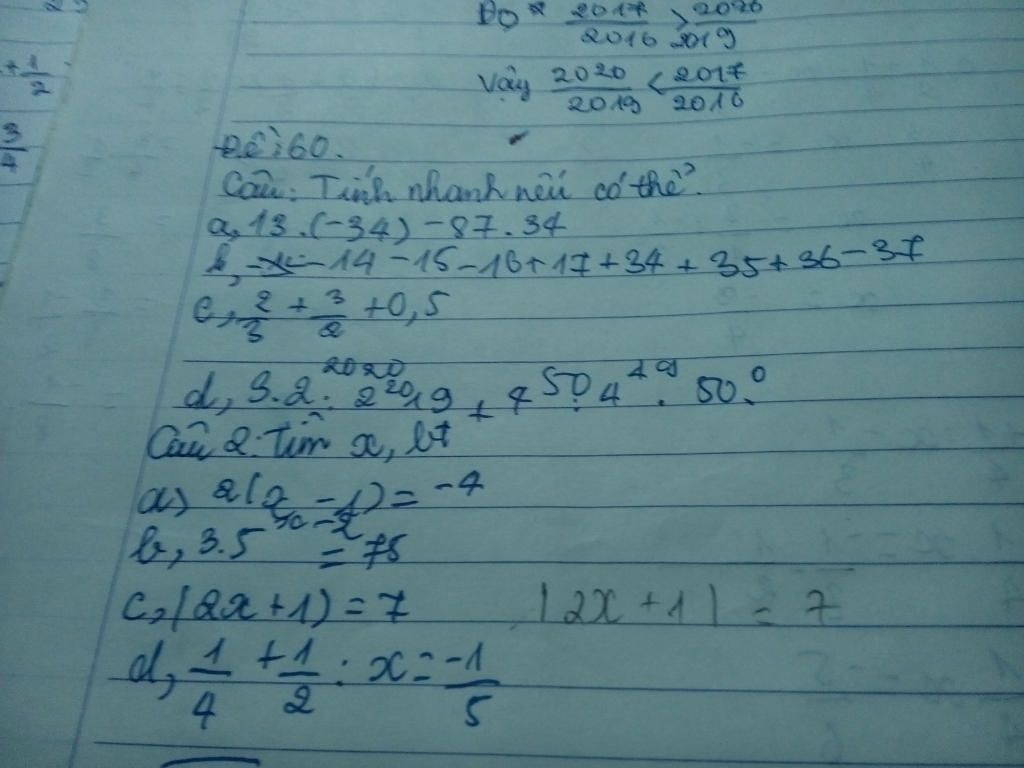 + 1/2
3/4
Do 2017/2016 > 2020/2019
Vậy 2020/2019 < 2017/2016
Đề: 60.
Câu: Tính nhanh nếu có thể.
a, 13.(-34) - 87.34
b, -14 - 15 - 16 + 17 + 34 + 35 + 36 - 37
c, 2/3 + 3/2 + 0,5
d, 3.2^2020 : 2^2019 + 4^50 : 4^49 . 50^0
Câu 2: Tìm x, bt
a) 2(x - 1) = -4
b, 3.5^(x-2) = 75
c, (2x + 1) = 7 |2x + 1| = 7
d, 1/4 + 1/2 : x = -1/5